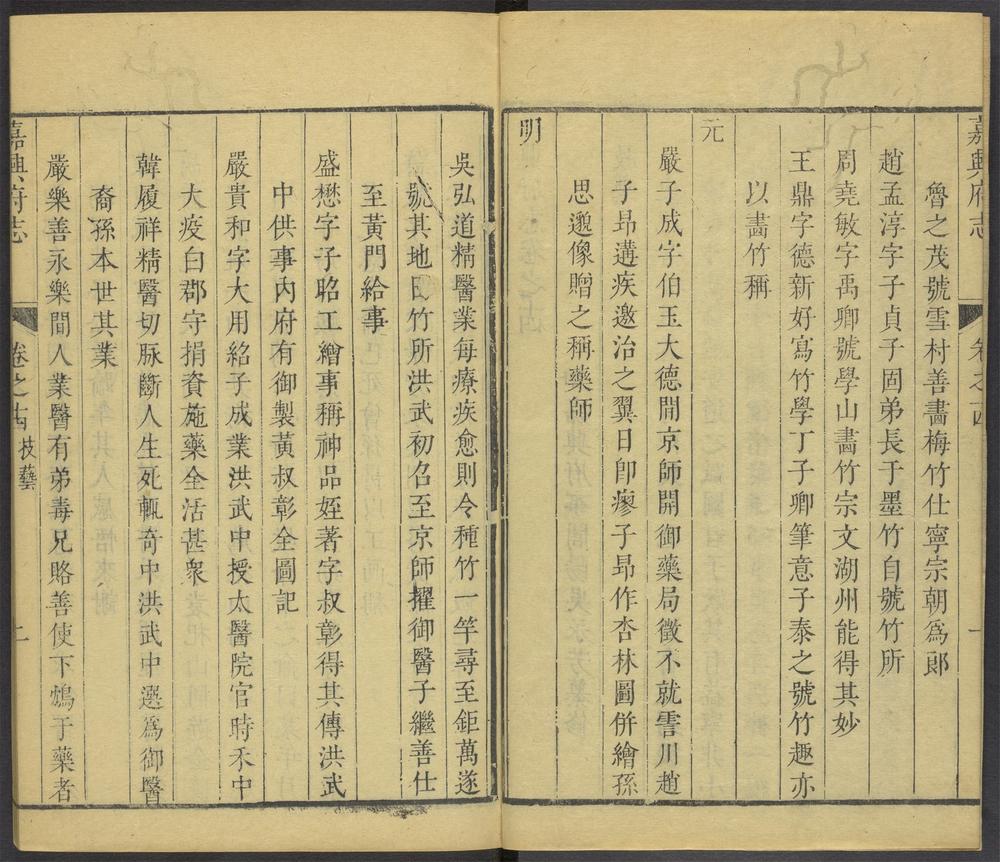 嘉興府志
魯之茂號雪村善畵梅竹仕寧宗朝爲郞
趙孟淳字子貞子固弟長于墨竹自號竹所
周堯敏字禹卿號學山畵竹宗文湖州能得其妙
王鼎字德新好寫竹學丁子卿筆意子泰之號竹趣亦
以畵竹稱
元
嚴子成字伯玉大德間京師開御藥局徵不就霅川趙
子昻遘疾邀治之翼日卽瘳子昻作杏林圖併繪孫
思邈像贈之稱藥師
明
吳弘道精醫業每療疾愈則令種竹一竿尋至鉅萬遂
號其地曰竹所洪武初召至京師擢御醫子繼善仕
至黃門給事
盛懋字子昭工繪事稱神品姪著字叔彰得其傳洪武
中供事內府有御製黃叔彰全圖記
嚴貴和字大用紹子成業洪武中授太醫院官時禾中
大疫白郡守捐資施藥全活甚衆
韓履祥精醫切脉斷人生死輒奇中洪武中選爲御醫
裔孫本世其業
嚴樂善永樂間人業醫有弟毒兄賂善使下鴆于藥者
嘉興府志
卷之十四 技藝